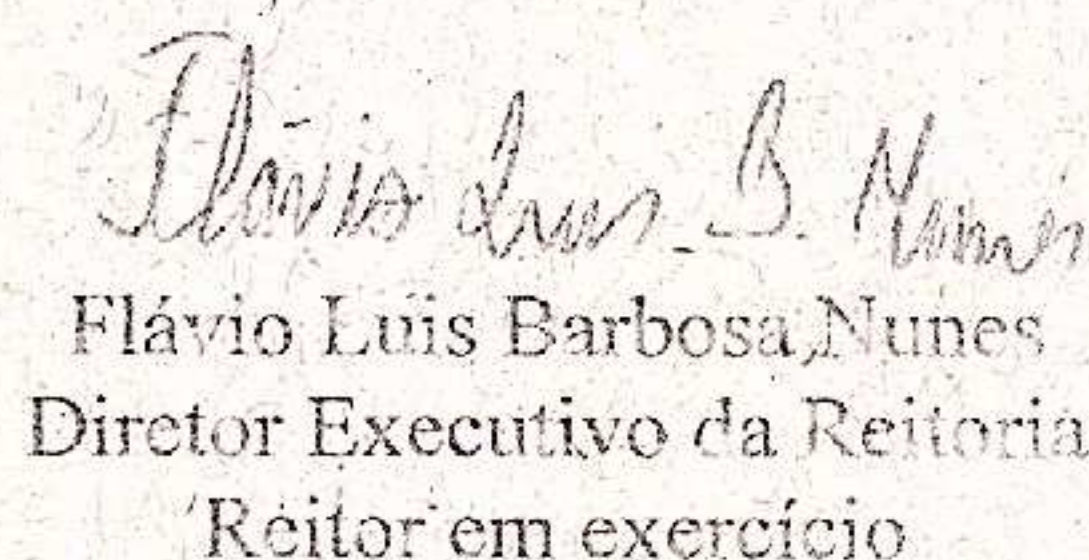 Flávio Luis B. Nunes
Flávio Luis Barbosa Nunes
Diretor Executivo da Reitoria
Reitor em exercício